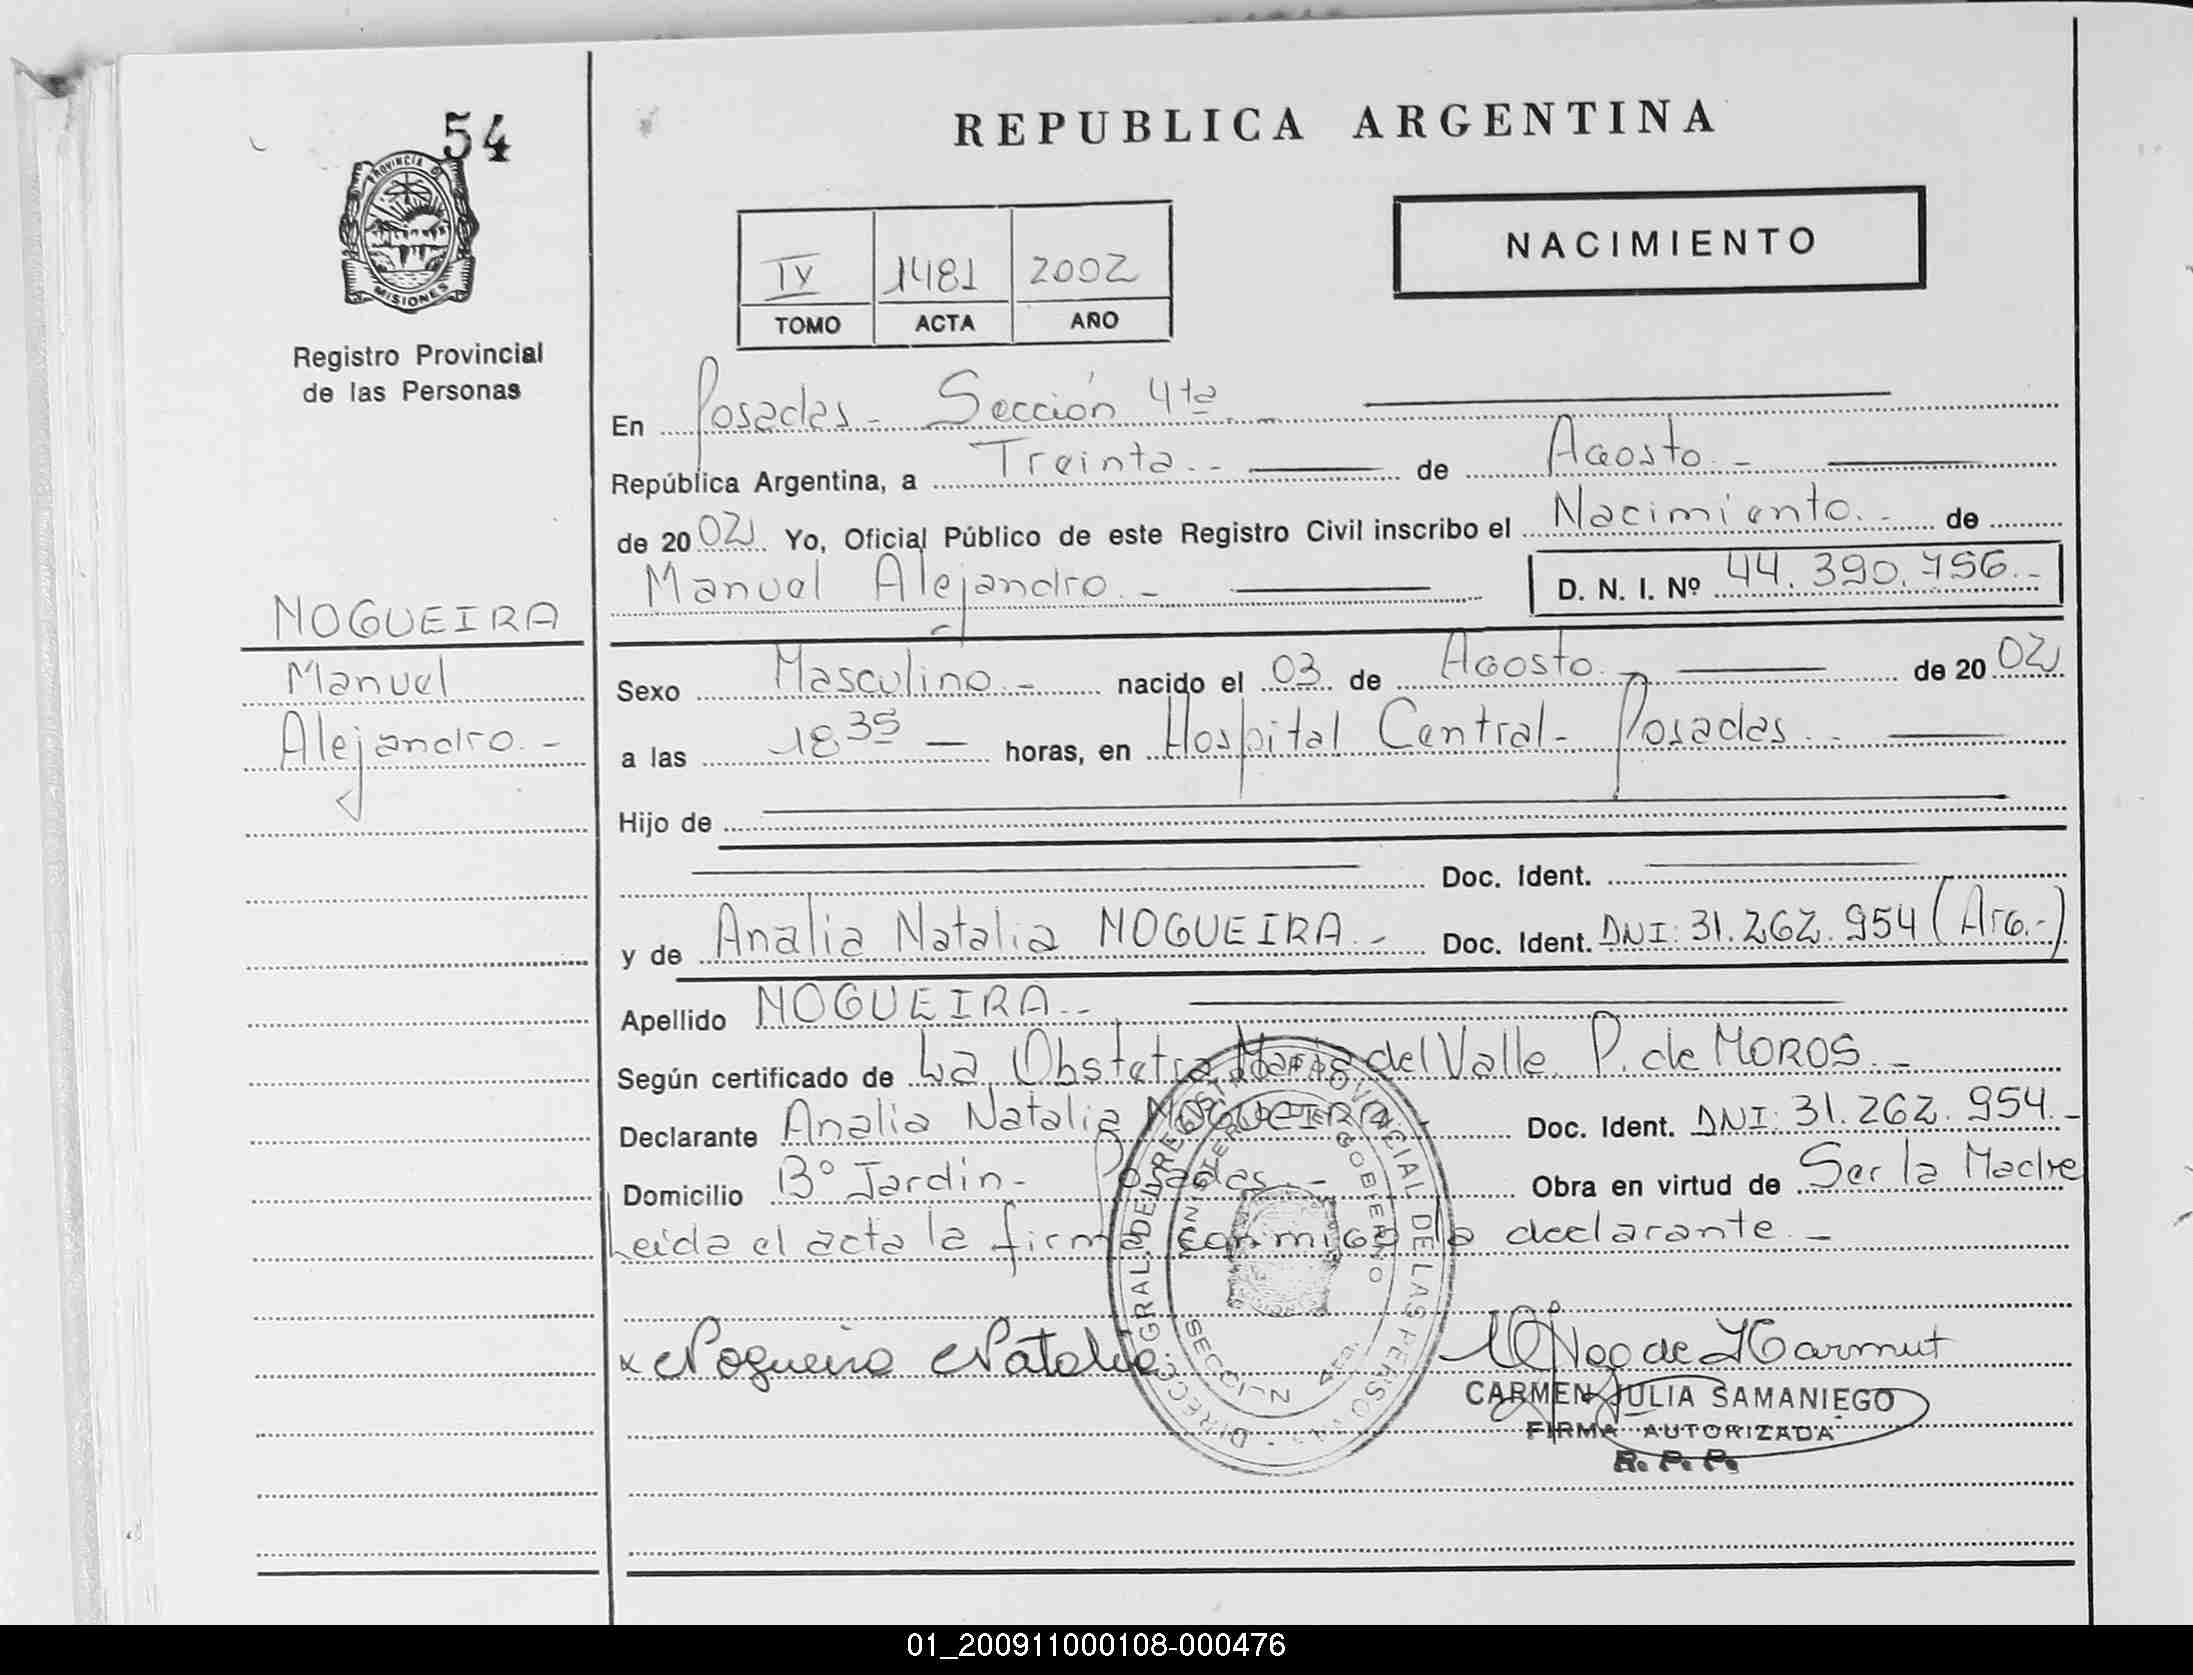 54
PROVINCIA DE
MISIONES
Registro Provincial
de las Personas
NOGUEIRA
Manuel
Alejandro.-
REPUBLICA ARGENTINA
NACIMIENTO
IV 1481 2002
TOMO ACTA AÑO
En Posadas- Sección 4ta.-
República Argentina, a Treinta.- de Agosto.-
de 2002 Yo, Oficial Público de este Registro Civil inscribo el Nacimiento.- de
Manuel Alejandro.- D. N. I. Nº 44.390.756.-
Sexo Masculino.- nacido el 03 de Agosto.- de 2002
a las 18 35 horas, en Hospital Central- Posadas.-
Hijo de
Doc. Ident.
y de Analia Natalia NOGUEIRA.- Doc. Ident. DNI: 31.262.954 (Arg.-)
Apellido NOGUEIRA.-
Según certificado de La Obstetra Maria del Valle P. de MOROS.-
Declarante Analia Natalia NOGUEIRA Doc. Ident. DNI: 31.262.954.-
Domicilio Bº Jardin- Posadas.- Obra en virtud de Ser la Madre
Leida el acta la firma conmigo la declarante.-
x Nogueira Natalia
CARMEN JULIA SAMANIEGO
FIRMA AUTORIZADA
R. P. P.
DIRECC GRAL. DEL REGISTRO PROVINCIAL DE LAS PERSONAS
GOBIERNO
SECCION 4ta
01_200911000108-000476